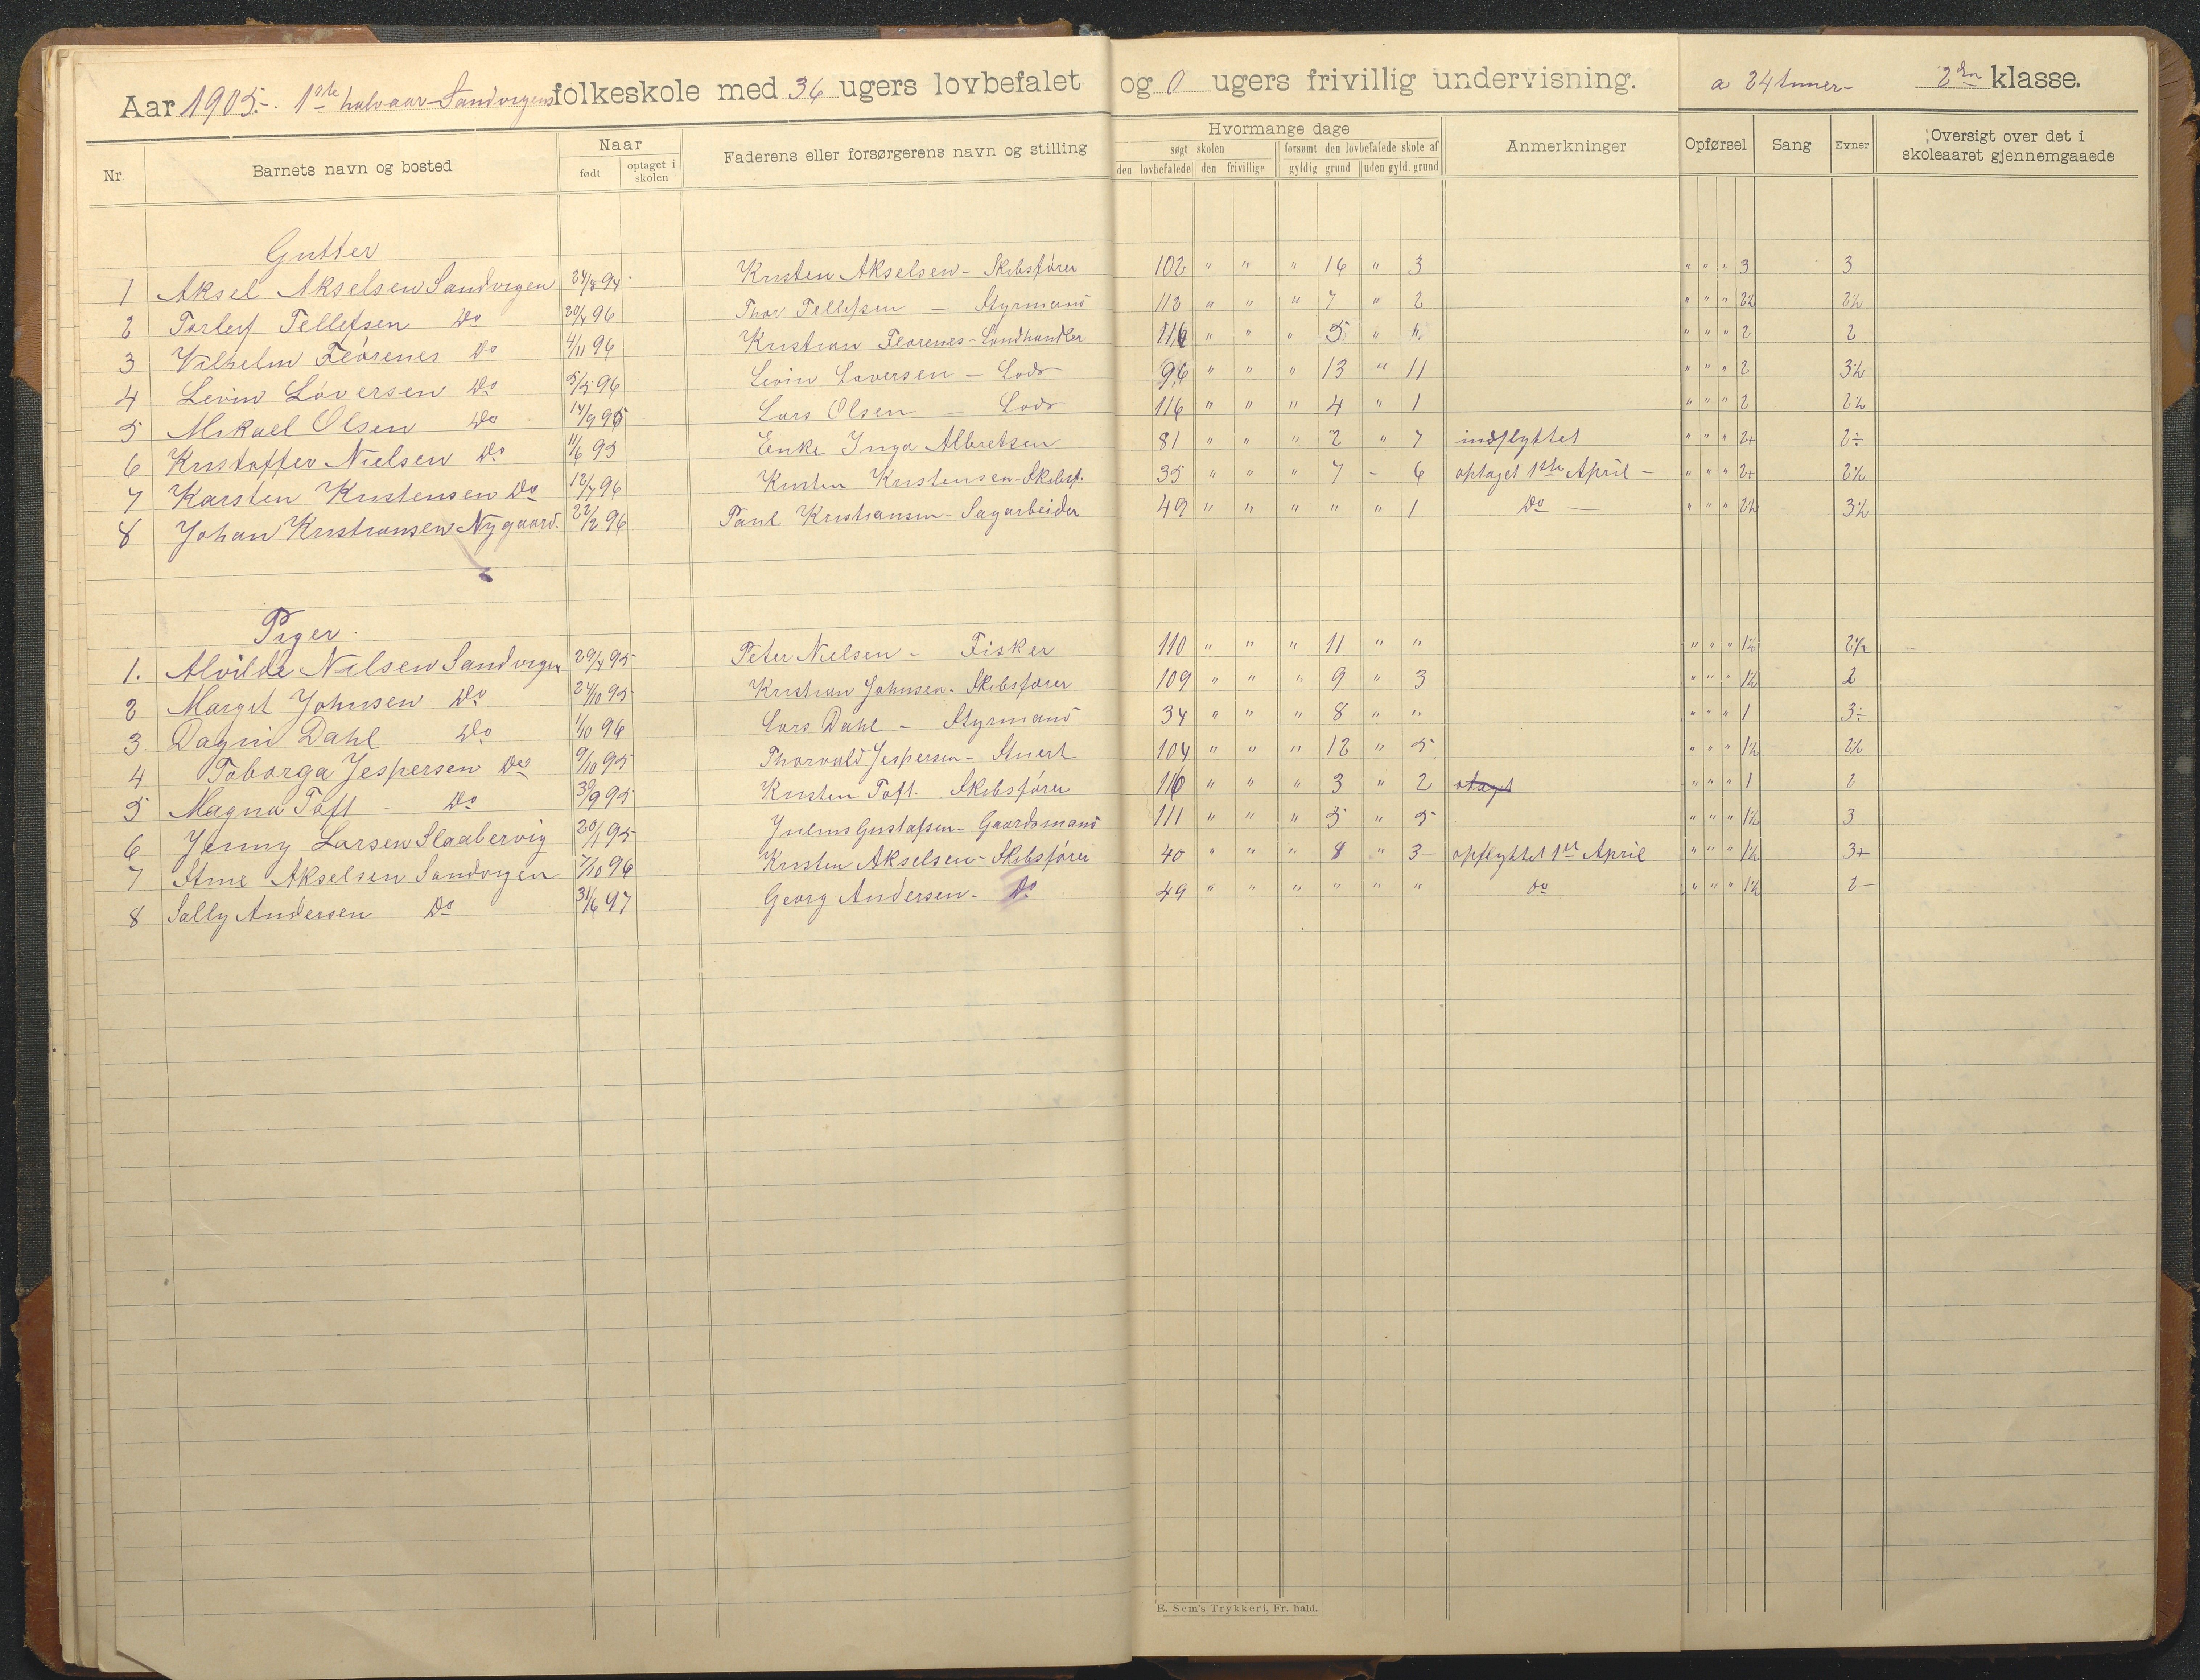 Aar 1905.- 1ste halvaar - Sandvigens folkeskole med 36 ugers lovbefalet og 0 ugers frivillig undervisning. a 24 timer - 2den klasse.
Nr. Barnets navn og bosted Naar født optaget i skolen Faderens eller forsørgerens navn og stilling Hvormange dage søgt skolen den lovbefalede den frivillige forsømt den lovbefalede skole af gyldig grund uden gyld. grund Anmerkninger Opførsel Sang Evner Oversigt over det i skoleaaret gjennemgaaede
Gutter
1 Aksel Akselsen Sandvigen 24/8 94 Kristen Akselsen - Skibsfører 102 " " " 16 " 3 " " " 3 3
2 Torleif Tellefsen Do 20/4 96 Thor Tellefsen - Styrmand 112 " " " 7 " 2 " " " 2½ 2½
3 Vilhelm Florenes Do 4/11 96 Kristian Florenes - Landhandler 116 " " " 5 " " " " " 2 2
4 Levin Løversen Do 5/5 96 Levin Løversen - Lods 96 " " " 13 " 11 " " " 2 3½
5 Mikael Olsen Do 14/9 95 Lars Olsen - Lods 116 " " " 4 " 1 " " " 2 2½
6 Kristoffer Nielsen Do 11/6 95 Enke Inga Albretsen 81 " " " 2 " 7 indflyttet " " " 2+ 2÷
7 Karsten Kristensen Do 12/7 96 Kristen Kristensen - Skibsf. 35 " " " 7 - 6 optaget 1ste April - " " " 2+ 2½
8 Johan Kristiansen Nygaard. 22/2 96 Paul Kristiansen - Sagarbeider 49 " " " " " 1 Do - " " " 2½ 3½
Piger.
1. Alvilde Nilsen Sandvigen 29/4 95 Peter Nielsen - Fisker 110 " " " 11 " " " " " 1½ 2½
2 Margit Johnsen Do 24/10 95 Kristian Johnsen - Skibsfører 109 " " " 9 " 3 " " " 1½ 2
3. Dagni Dahl Do 1/10 96 Lars Dahl - Styrmand 34 " " " 8 " " " " " 1 3÷
4 Toborga Jespersen Do 9/10 95 Thorvald Jespersen - Stuert 104 " " " 12 " 5 " " " 1½ 2½
5 Magna Toft - Do 30/9 95 Kristen Toft. Skibsfører 110 " " " 3 " 2 otaget " " " 1 2
6 Jenny Larsen Slaabervig 20/1 95 Julius Gustafsen - Gaardsmand 111 " " " 5 " 5 " " " 1½ 3
7 Stine Akselsen Sandvigen 7/10 96 Kristen Akselsen - Skibsfører 40 " " " 8 " 3 - opflyttet 1st April " " " 1½ 3+
8 Sally Andersen Do 31/6 97 Georg Andersen - Do 49 " " " " " " Do " " " 1½ 2-
E. Sem's Trykkeri, Fr. hald.